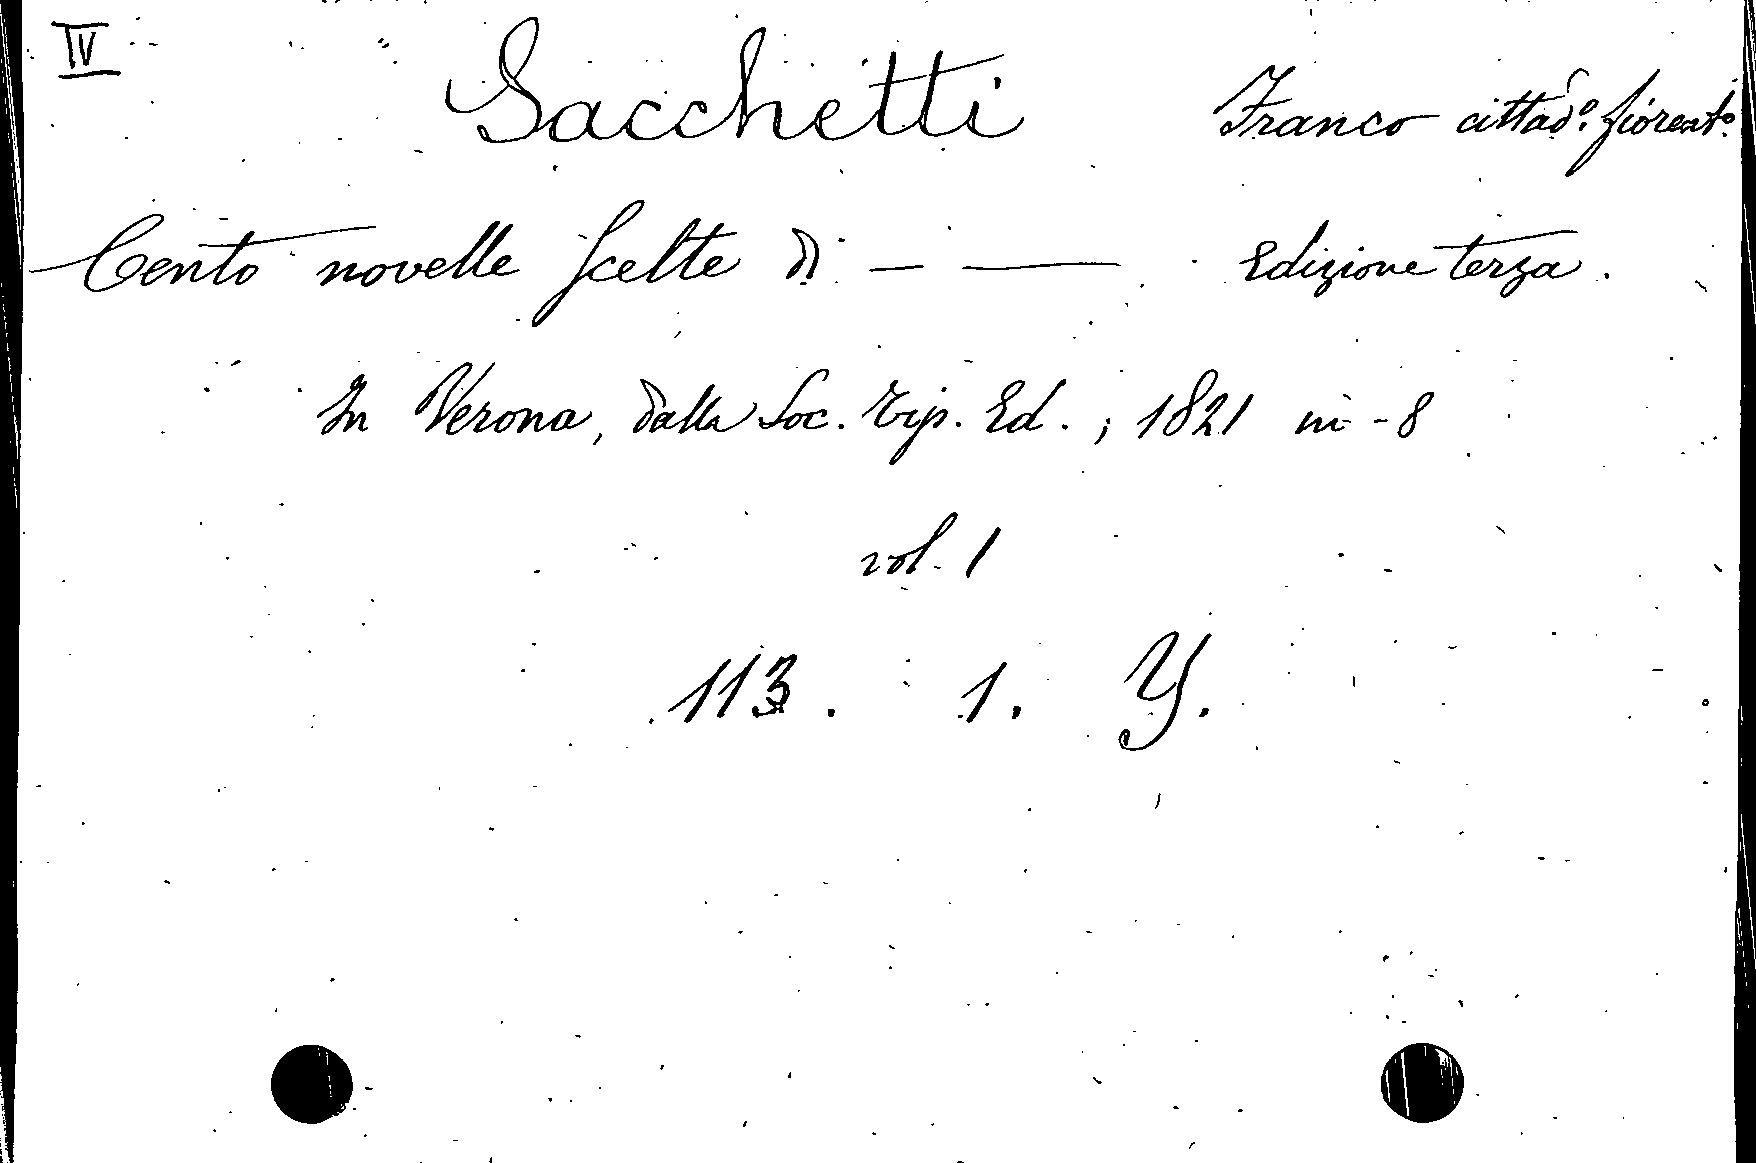 IV
Sacchetti Franco cittad.º fiorent.º
Cento novelle scelte di — — Edizione terza.
In Verona, dalla Soc. Tip. Ed., 1821 in-8
vol. 1
113. 1. Y.